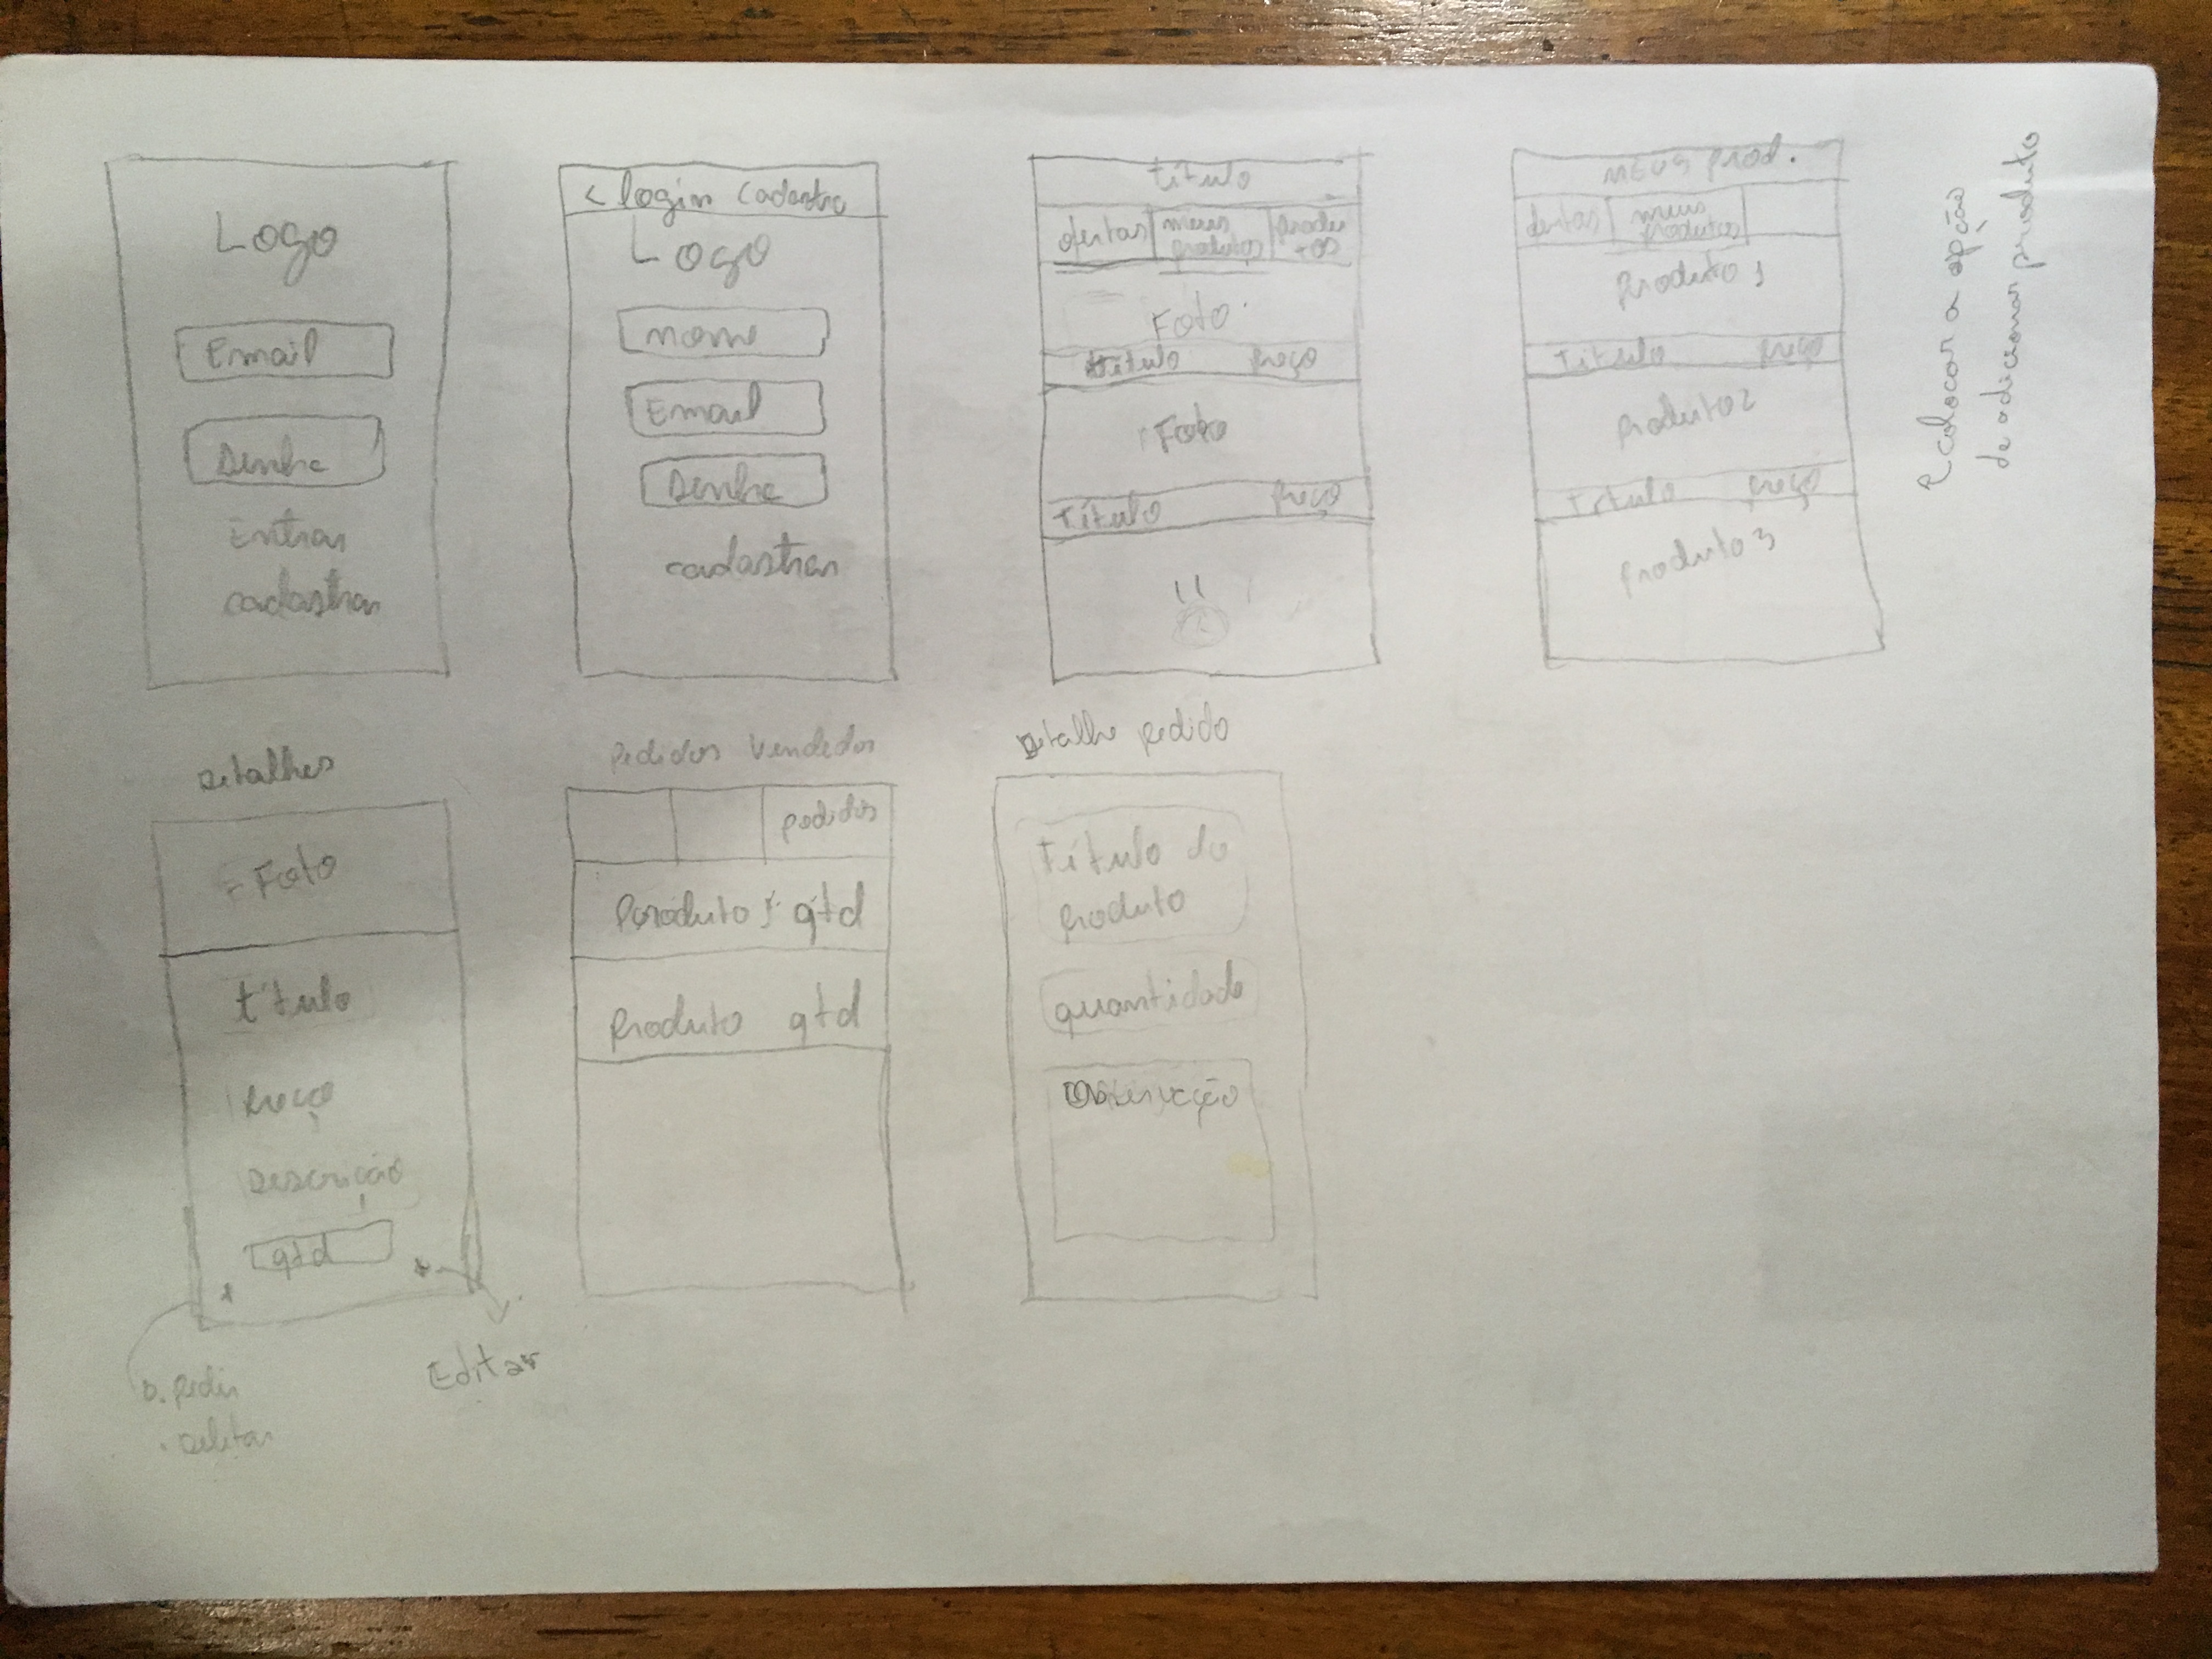 Logo
Email
Senha
Entrar
cadastrar
< login cadastro
Logo
nome
Email
Senha
cadastrar
título
ofertas meus produtos
Foto
título preço
Foto
Título preço
meus prod.
ofertas meus produtos
Produto 1
Título preço
Produto 2
Título preço
Produto 3
colocar a opção
de adicionar produto
Detalhes
Foto
título
Preço
Descrição
qtd
pedir
Deletar
Editar
Pedidos Vendedor
pedidos
Produto 1 qtd
Produto qtd
Detalhe pedido
Título do
produto
quantidade
Observação